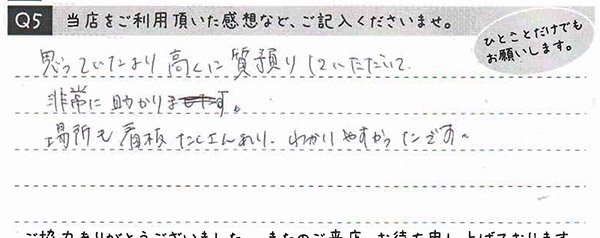 Q5 当店をご利用頂いた感想など、ご記入くださいませ。
ひとことだけでも
お願いします。
思っていたより高くに質預りしていただいて
非常に助かります。
場所も看板たくさんあり、わかりやすかったです。
ご協力ありがとうございました。またのご来店、お待ち申し上げております。